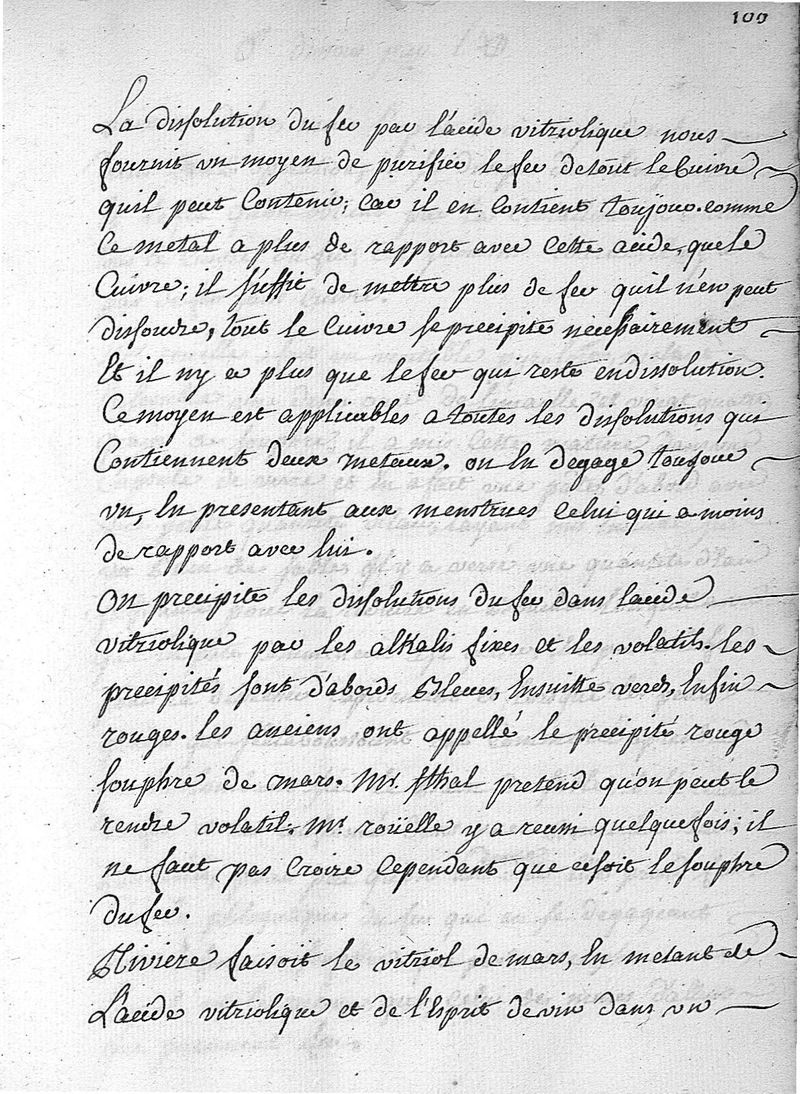 109
La dissolution du fer par l'acide vitriolique nous
fournit un moyen de purifier le fer de tout le Cuivre
quil peut Contenir; car il en Contient toujour. comme
Ce metal a plus de rapport avec Cette acide, que le
Cuivre; il suffit de mettre plus de fer quil n'en peut
dissoudre, tout le Cuivre se precipite necessairement
Et il ny a plus que le fer qui reste en dissolution.
Ce moyen est applicables a toutes les dissolutions qui
Contiennent deux metaux. on En degage toujour
un, En presentant aux menstrues Celui qui a moins
de rapport avec lui.
On precipite les dissolutions du fer dans lacide
vitriolique par les alkalis fixes et les volatils. les
precipités sont d'abords Bleues, Ensuitte verds, Enfin
rouges. les anciens ont appellé le precipité rouge
souphre de mars. Mr. Sthal pretend qu'on peut le
rendre volatil. Mr. roüelle y a reussi quelque fois; il
ne faut pas Croire Cependant que ce soit le souphre
du fer.
Riviere faisoit le vitriol de mars, En metant de
L'acide vitriolique et de l'Esprit de vin dans un